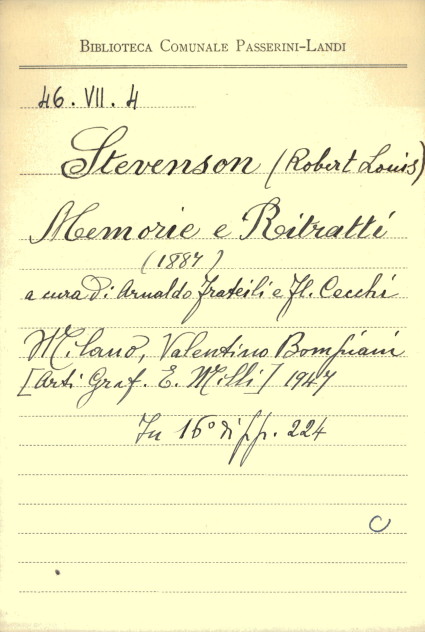 BIBLIOTECA COMUNALE PASSERINI-LANDI
46. VII. 4
Stevenson (Robert Louis)
Memorie e Ritratti
(1887)
a cura di Arnaldo Frateili e Fl. Cecchi
Milano, Valentino Bompiani
[Arti Graf. E. Milli] 1947
In 16° di pp. 224
C